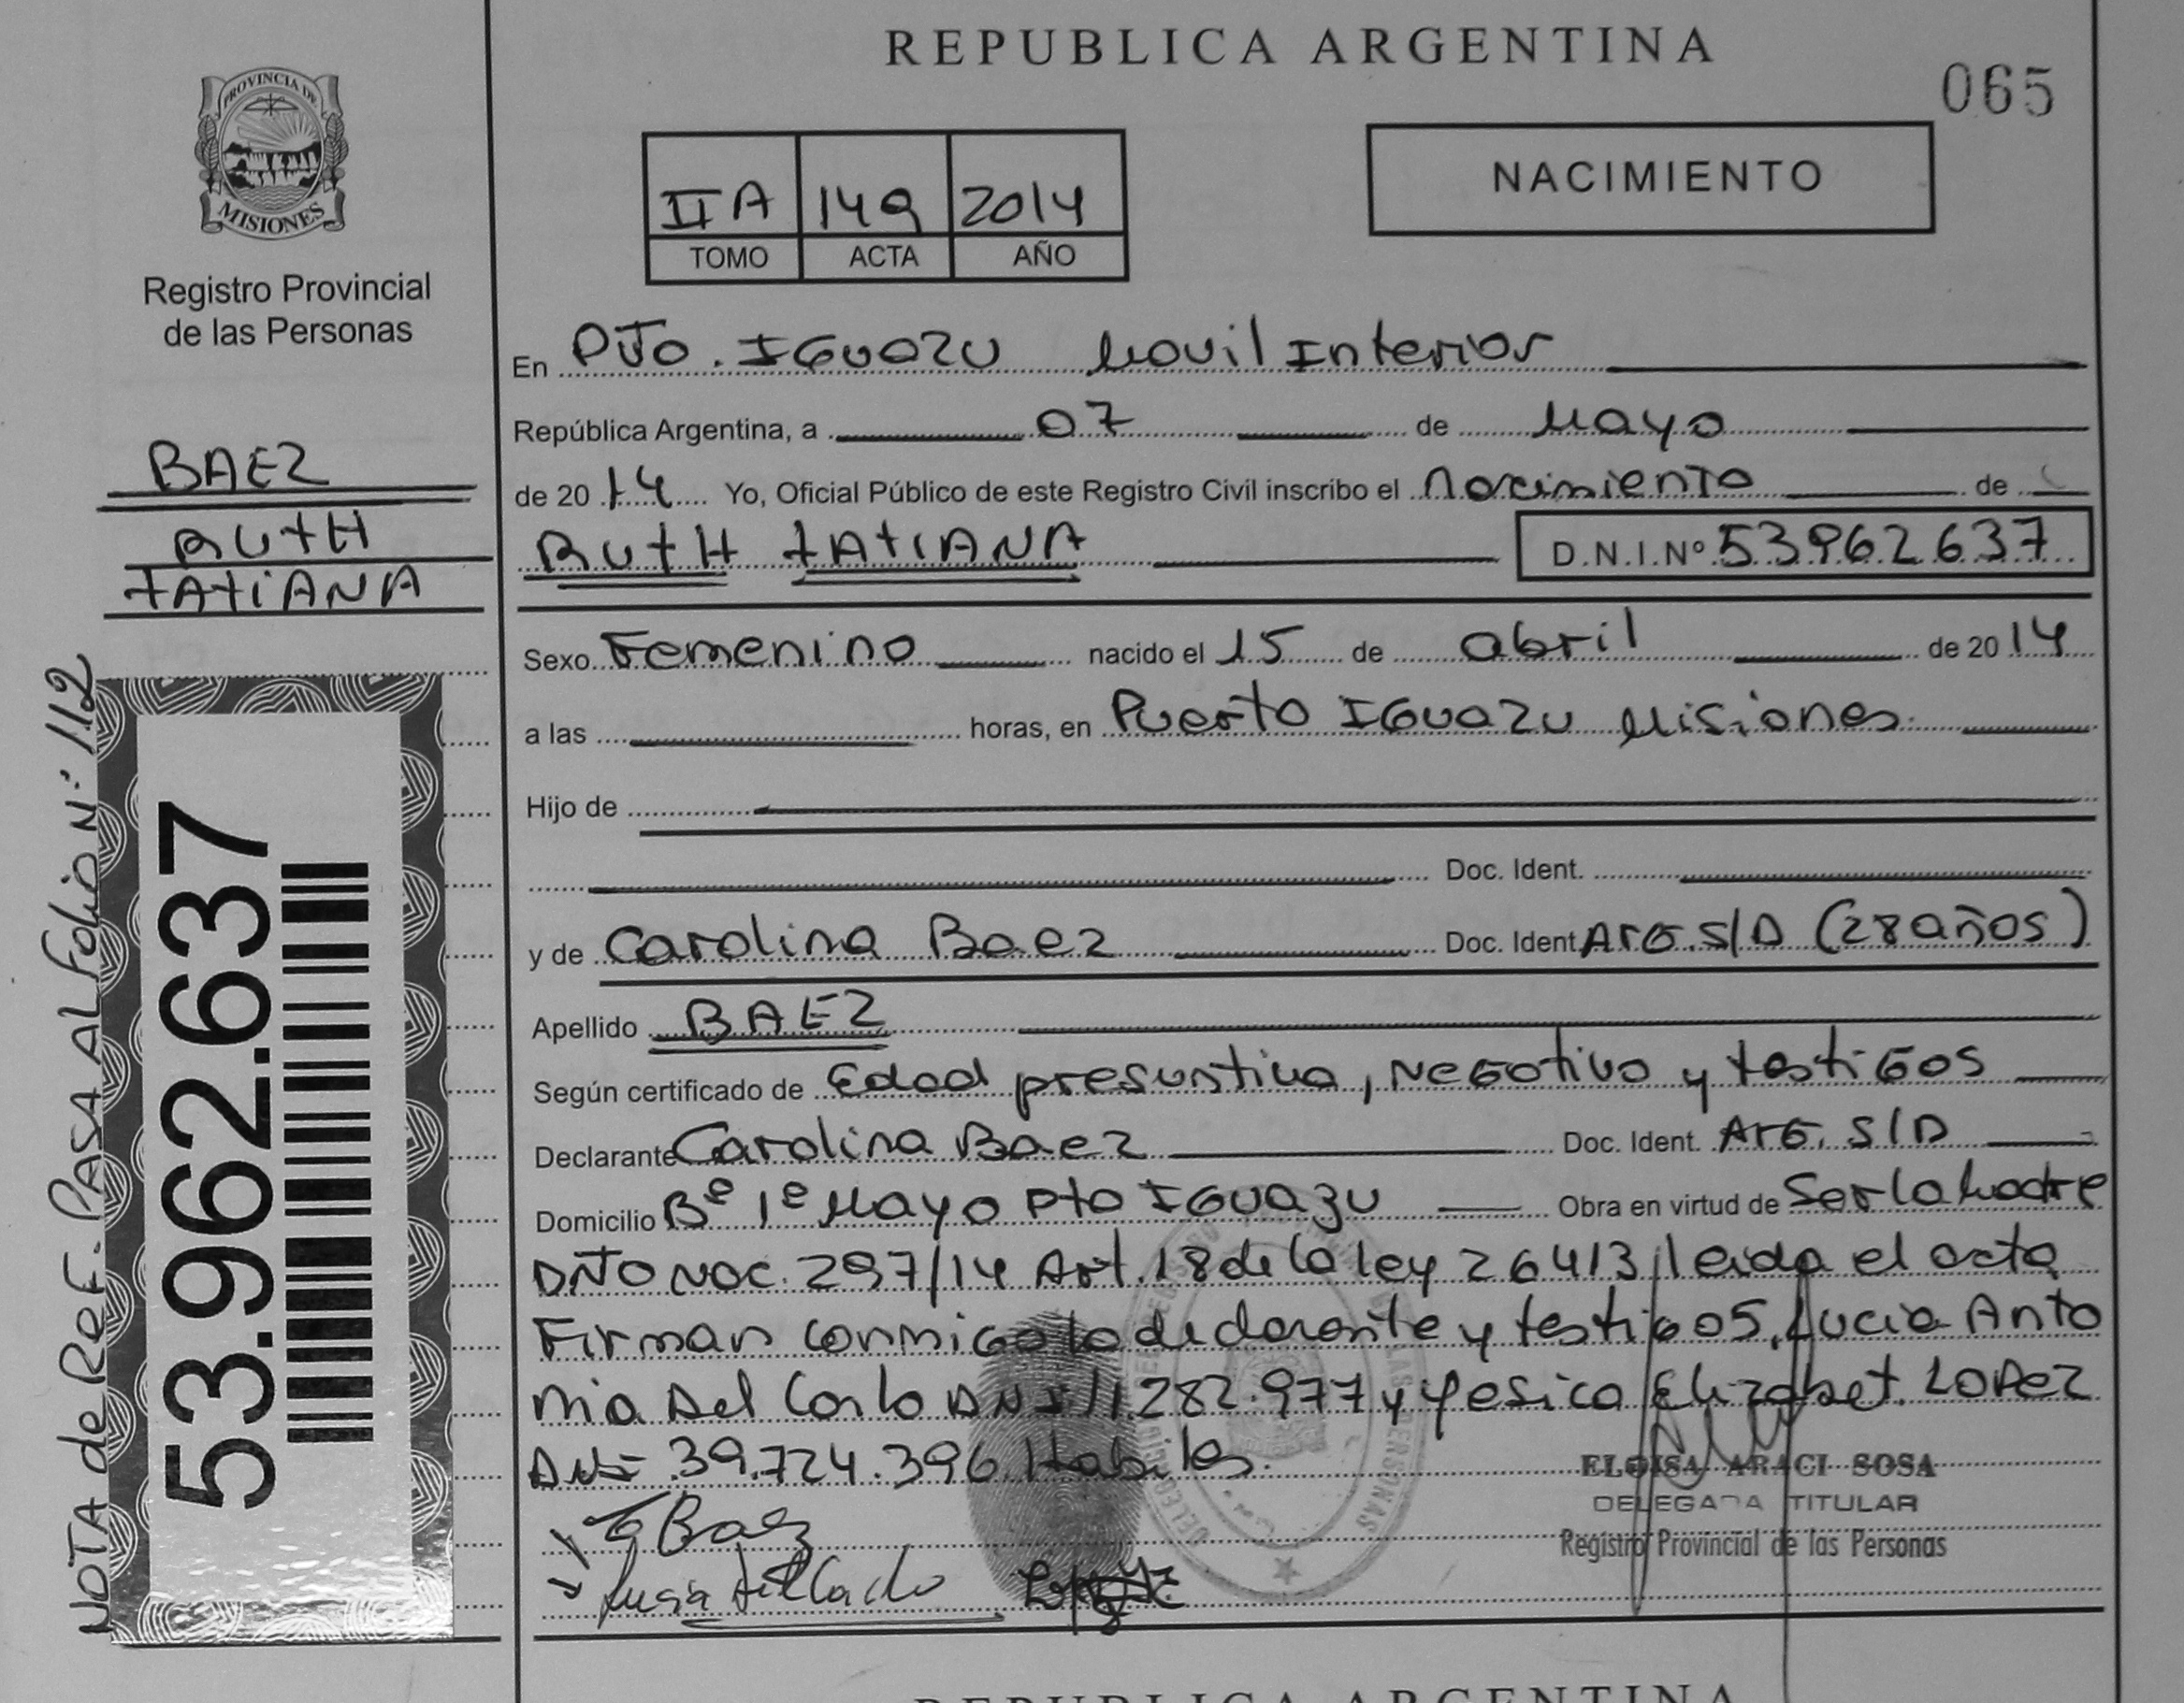 REPUBLICA ARGENTINA
065
PROVINCIA DE
MISIONES
Registro Provincial
de las Personas
IIA 149 2014
TOMO ACTA AÑO
NACIMIENTO
BAEZ
RUTH
TATIANA
NOTA de ReF. PASA AL Folio N: 112
53.962.637
En Pto. IGuazu Movil Interior
República Argentina, a 07 de Mayo
de 2014 Yo, Oficial Público de este Registro Civil inscribo el Nacimiento de
RUTH TATIANA D.N.I.Nº 53962637
Sexo Femenino nacido el 15 de abril de 2014
a las horas, en Puerto IGuazu Misiones
Hijo de
Doc. Ident.
y de Carolina Baez Doc. Ident ArG. S/D (28 años)
Apellido BAEZ
Según certificado de Edad presuntiva, NeGativo y testiGos
Declarante Carolina Baez Doc. Ident. ArG. S/D
Domicilio Bº 1º Mayo Pto IGuazu Obra en virtud de Ser la Madre
Dño Nac. 297/14 Art. 18 de la ley 26413 leida el acta
Firman conmigo la declarante y testigos, Lucia Anto
nia Del Carlo DNI 11.282.977 y Yesica Elizabet Lopez
DNI 39.724.396 Habiles.
Baez
ELOISA ARACI SOSA
DELEGADA TITULAR
Registro Provincial de las Personas
REPUBLICA ARGENTINA